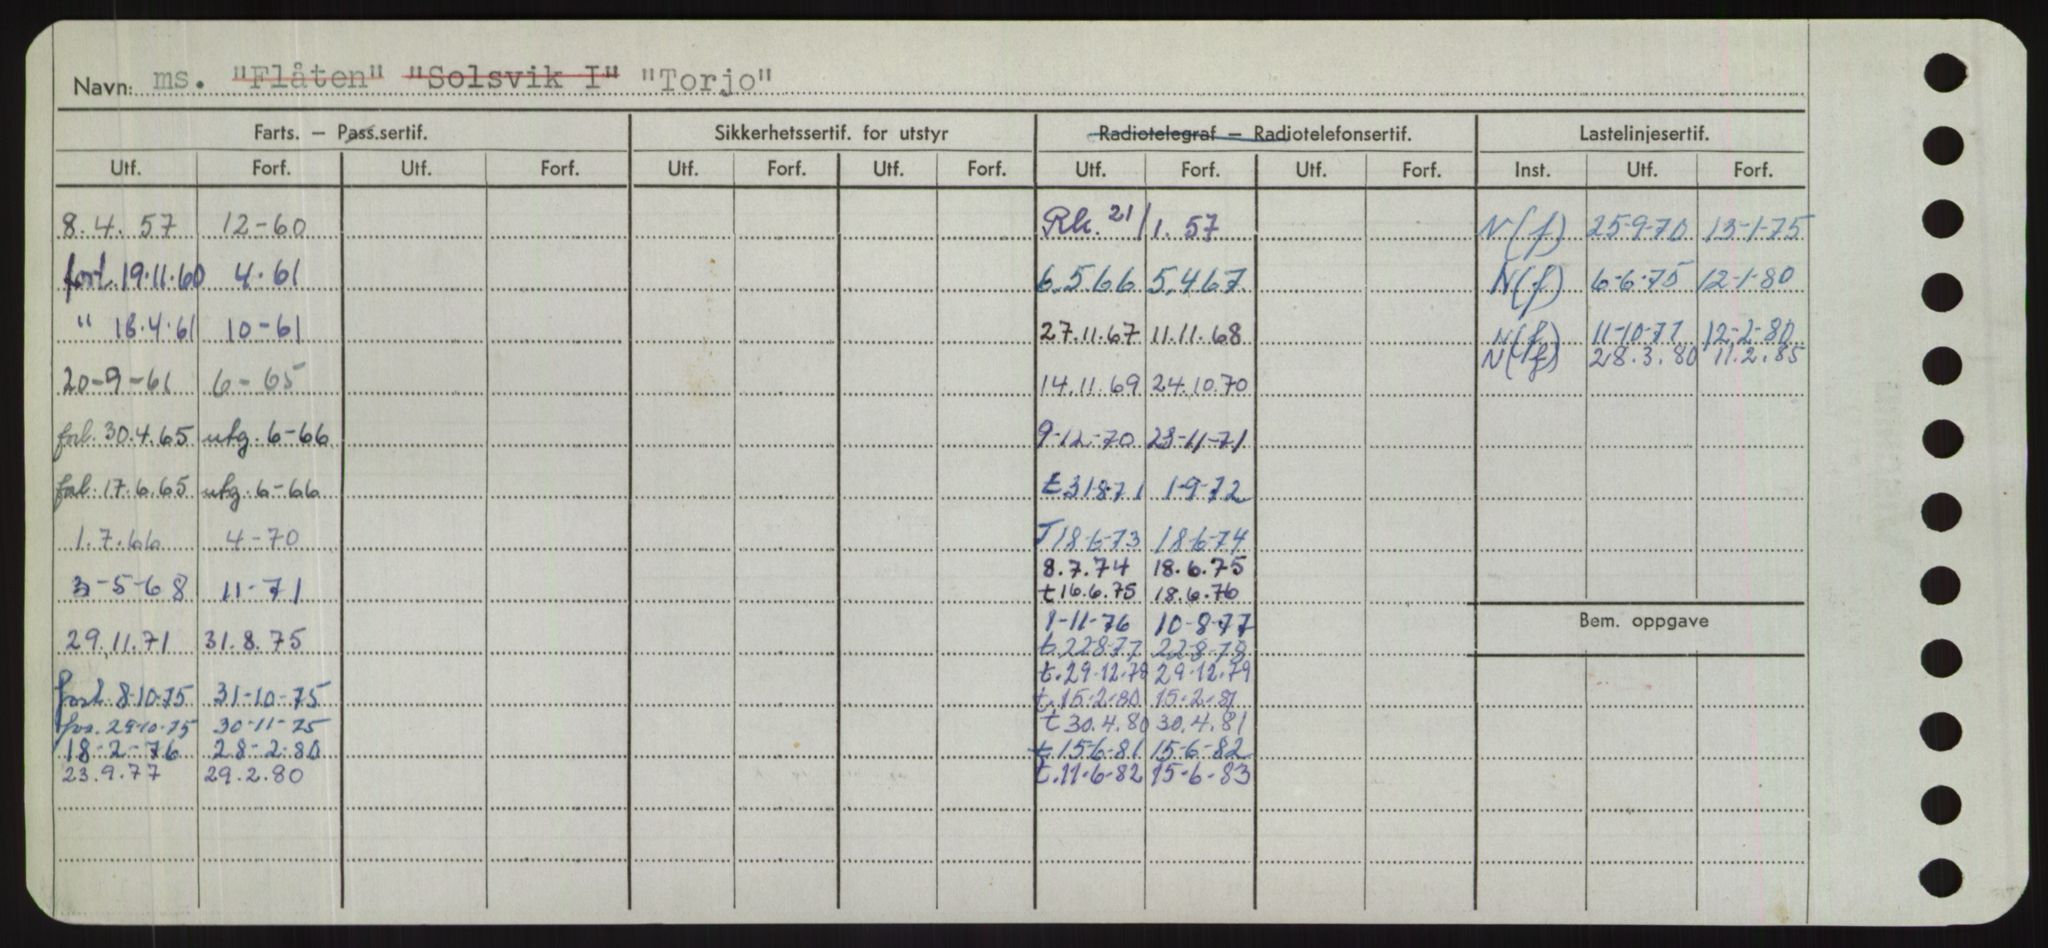 Navn: ms. "Flåten" "Solsvik I" "Torjo"
Farts. – Pass.sertif. Sikkerhetssertif. for utstyr Radiotelegraf – Radiotelefonsertif. Lastelinjesertif.
Utf. Forf. Utf. Forf. Utf. Forf. Utf. Forf. Utf. Forf. Utf. Forf. Inst. Utf. Forf.
8.4.57 12-60 Rk. 21/1.57 N(f) 25-9-70 13-1-75
forl. 19.11.60 4.61 6.5.66 5.4.67 N(f) 6-6-75 12-1-80
" 18.4.61 10-61 27.11.67 11.11.68 N(f) 11-10-77 12-2-80
N(f) 28.3.80 11.2.85
20-9-61 6-65 14.11.69 24.10.70
forl. 30.4.65 utg. 6-66 9-12-70 23-11-71
forl. 17.6.65 utg. 6-66 t 31871 1-9-72
1.7.66 4-70 T 18-6-73 18-6-74
8.7.74 18.6.75
3-5-68 11-71 t 16.6.75 18.6.76
1-11-76 10-8-77
Bem. oppgave
29.11.71 31.8.75 t. 22877 22-8-78
t. 29-12.78 29-12.79
forl. 8-10-75 31-10-75 t. 15-2-80 15-2-81
for. 29-10-75 30-11-75 t 30.4.80 30.4.81
18-2-76 28-2-80 t. 15-6-81 15-6-82
23.9.77 29.2.80 t. 11-6-82 15-6-83